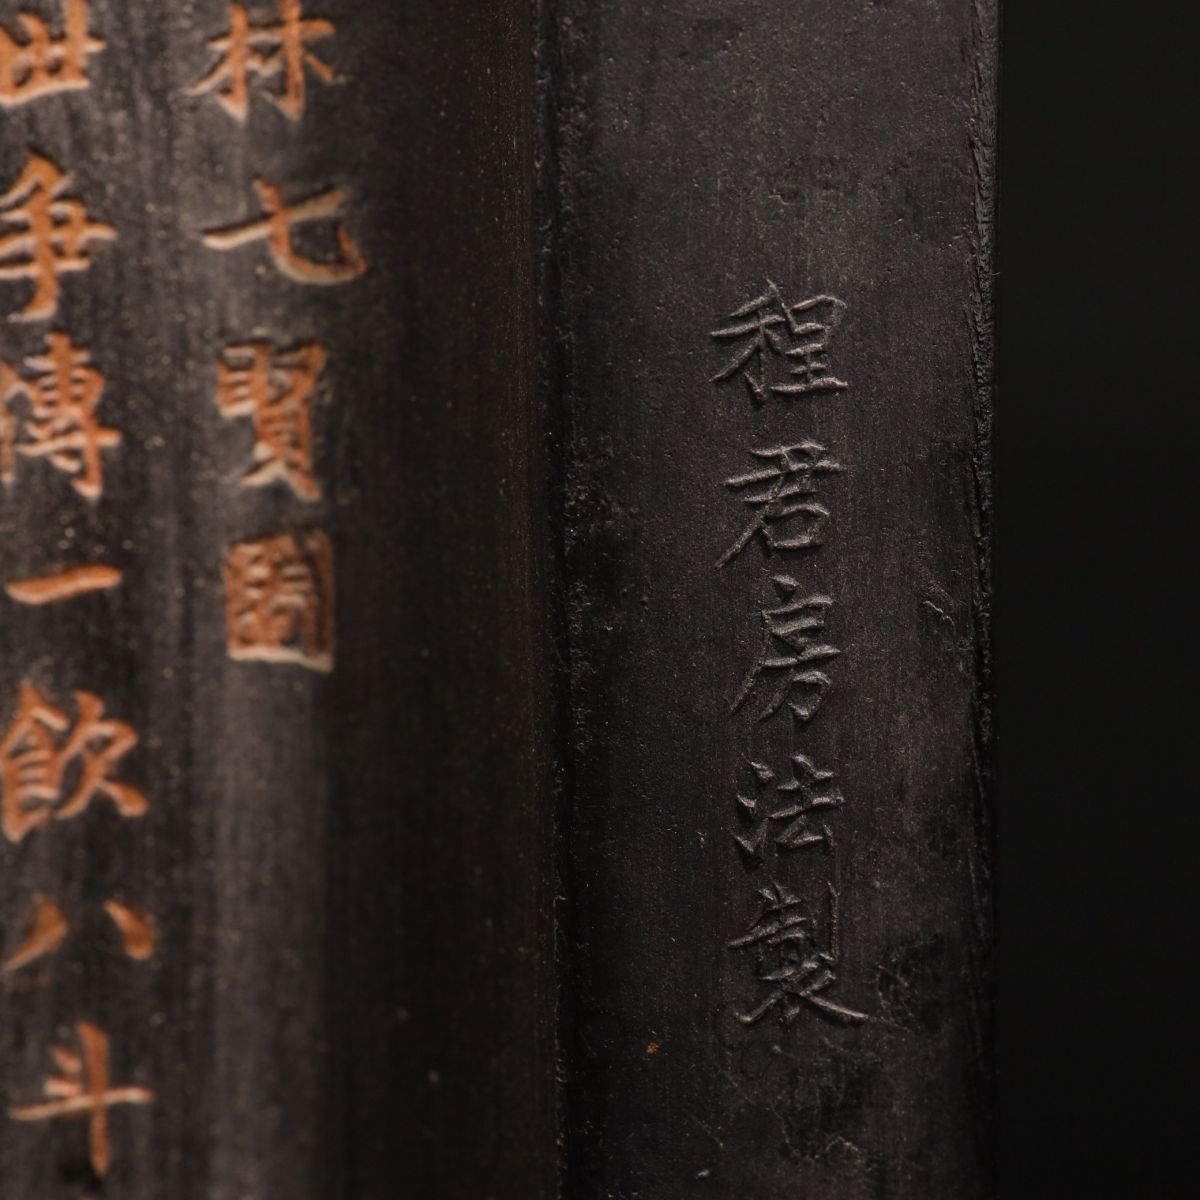 程君房法製
林七賢圖
世爭傳一飲八斗